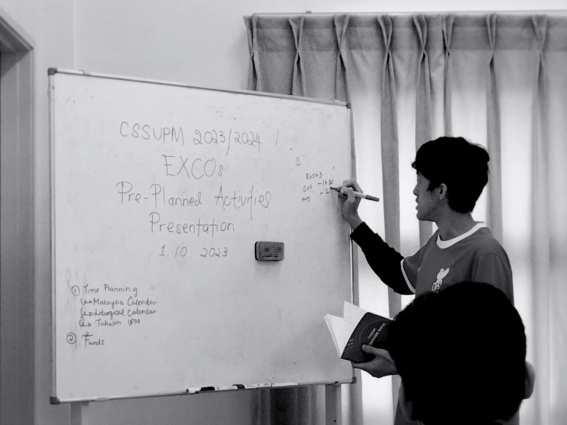 CSSUPM 2023/2024
EXCOs
Pre-Planned Activities
Presentation
1.10 2023
① Time Planning
Malaysia Calendar
Liturgical Calendar
Takwim UPM
② Funds